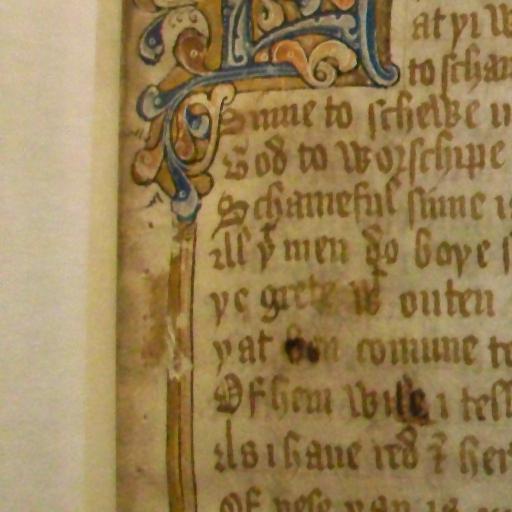 at yi
to scham
Sinne to schewe
God to worschipe
Schameful sinne
Al yᵗ men do boye
ye grete wᵗ outen
yat ben comune to
Of hem wil i tell
Als i haue red & her
Of yese